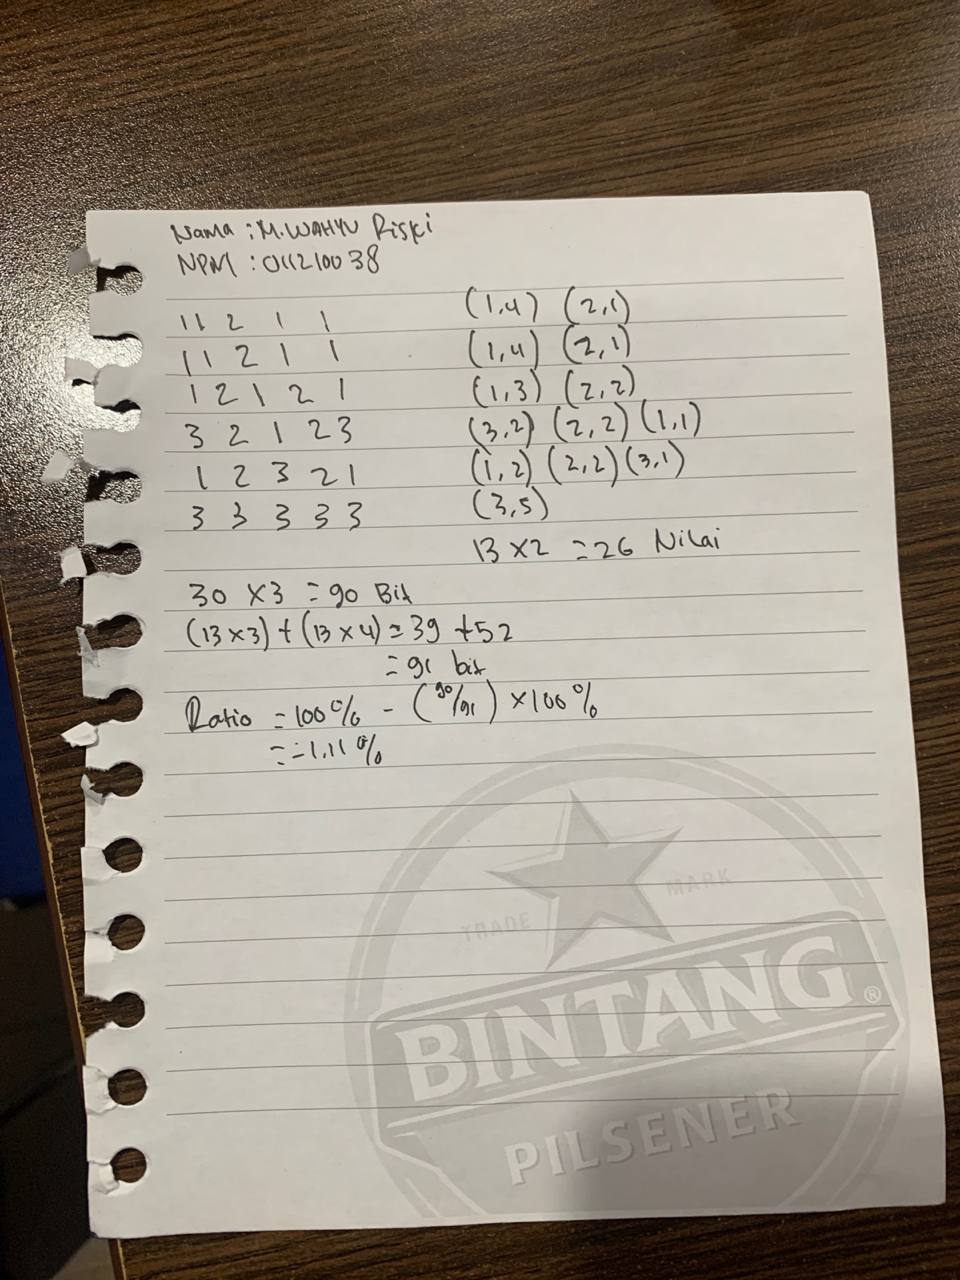 Nama : M. WAHYU Riski
NPM : 011210038
11 2 1 1 (1,4) (2,1)
11 2 1 1 (1,4) (2,1)
1 2 1 2 1 (1,3) (2,2)
3 2 1 2 3 (3,2) (2,2) (1,1)
1 2 3 2 1 (1,2) (2,2) (3,1)
3 3 3 3 3 (3,5)
13 x 2 = 26 Nilai
30 x 3 = 90 Bit
(13 x 3) + (13 x 4) = 39 + 52
= 91 bit
Ratio = 100% - (90/91) x 100%
= -1.11 %
TRADE MARK
BINTANG ®
PILSENER